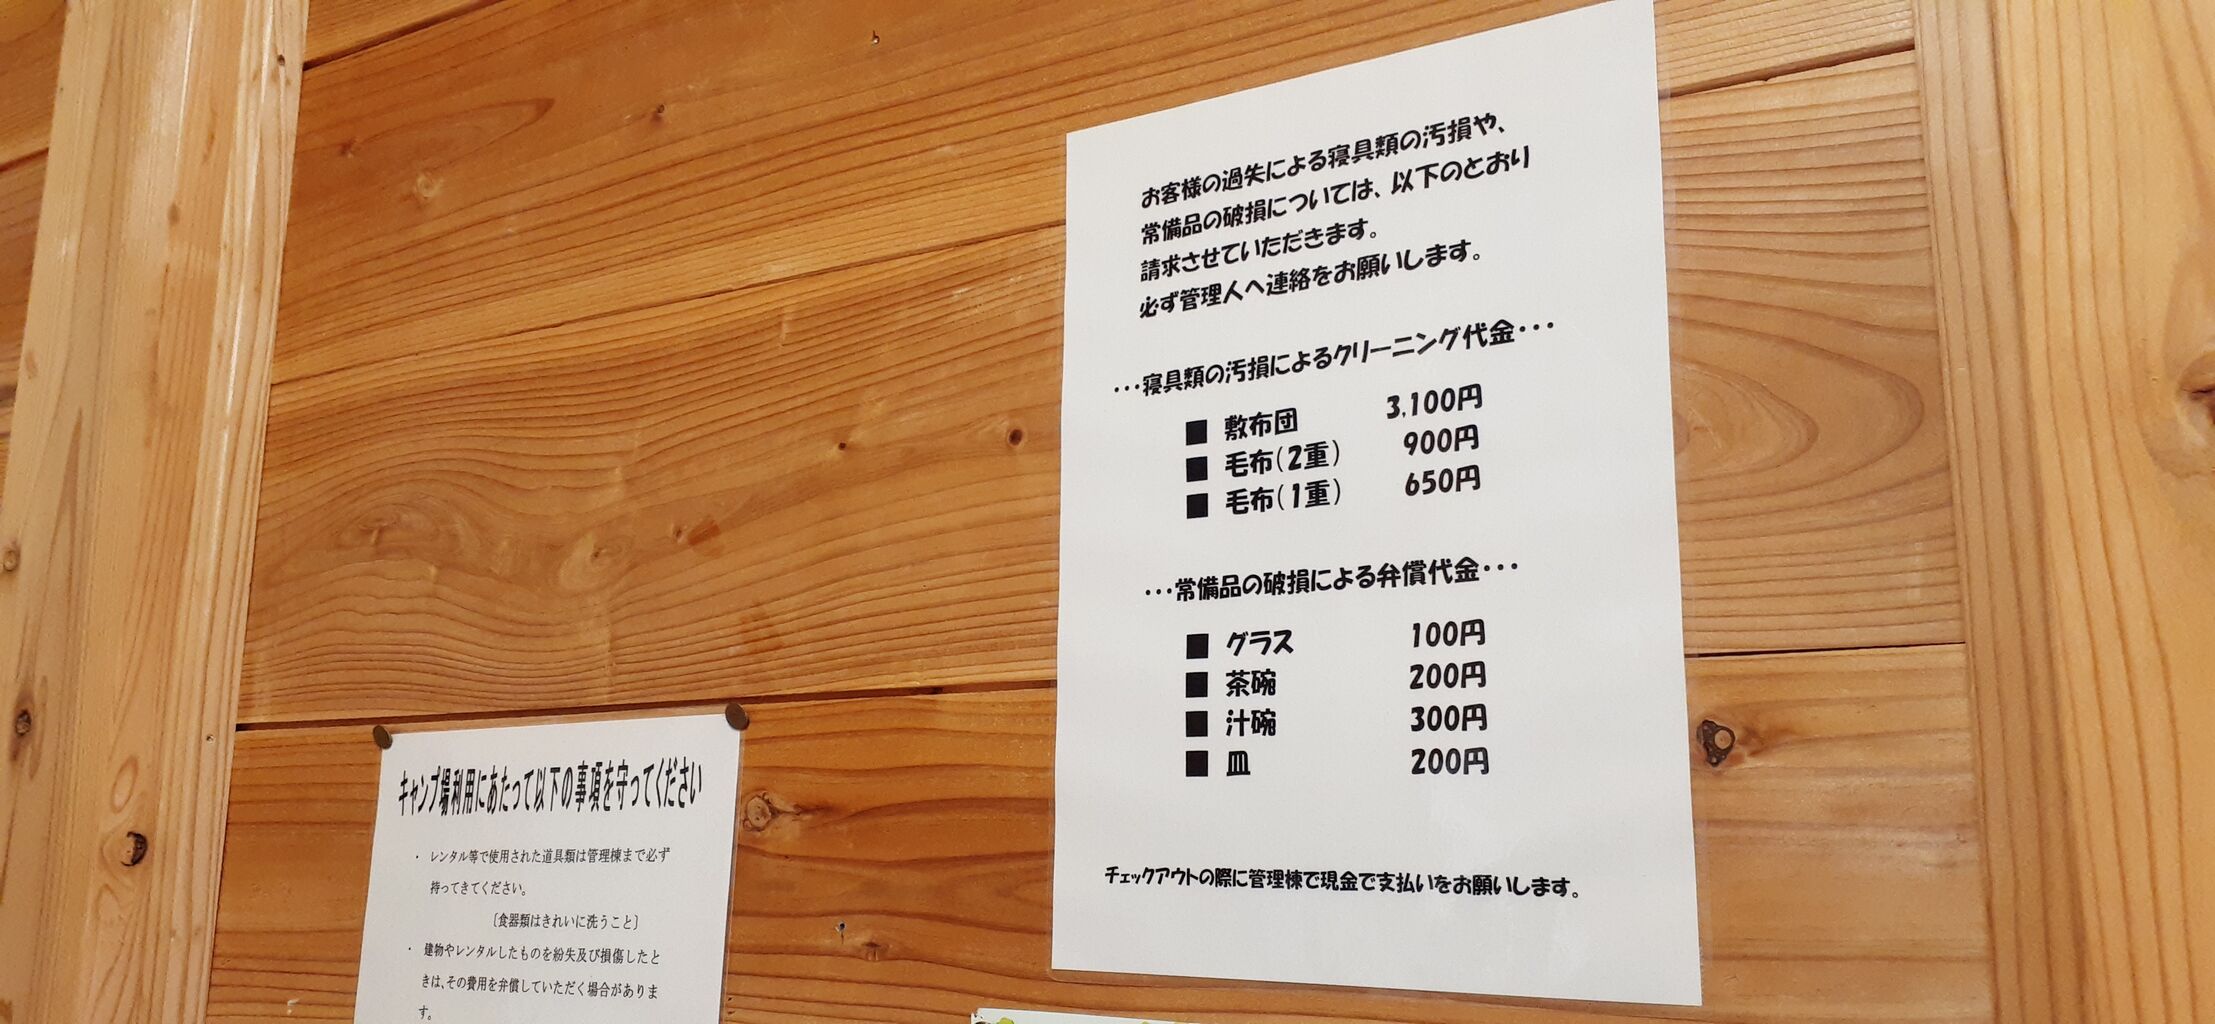 お客様の過失による寝具類の汚損や、
常備品の破損については、以下のとおり
請求させていただきます。
必ず管理人へ連絡をお願いします。
･･･寝具類の汚損によるクリーニング代金･･･
■ 敷布団 3,100円
■ 毛布(2重) 900円
■ 毛布(1重) 650円
･･･常備品の破損による弁償代金･･･
■ グラス 100円
■ 茶碗 200円
■ 汁碗 300円
■ 皿 200円
チェックアウトの際に管理棟で現金で支払いをお願いします。
キャンプ場利用にあたって以下の事項を守ってください
・ レンタル等で使用された道具類は管理棟まで必ず
持ってきてください。
〔食器類はきれいに洗うこと〕
・ 建物やレンタルしたものを紛失及び損傷したと
きは、その費用を弁償していただく場合がありま
す。